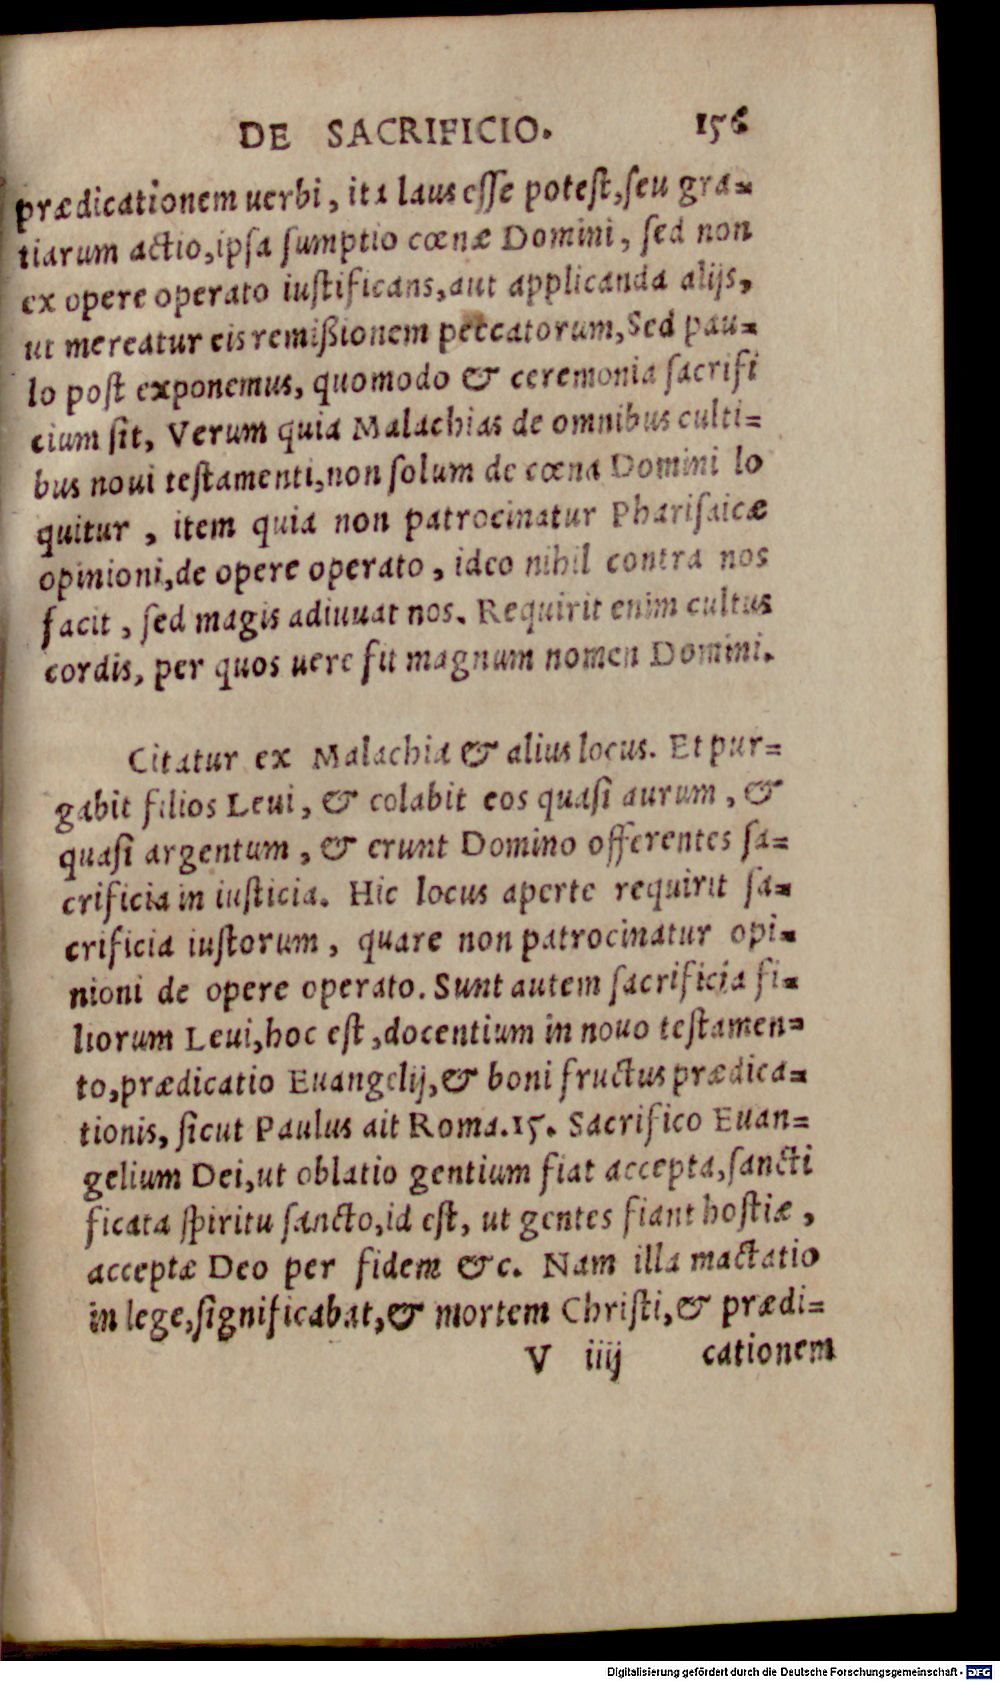 DE SACRIFICIO. 156
prædicationem uerbi, ita laus eſſe poteſt,ſeu gra=
tiarum actio,ipſa ſumptio cœnæ Domini, ſed non
ex opere operato iuſtificans,aut applicanda alijs,
ut mereatur eis remißionem peccatorum,Sed pau=
lo poſt exponemus, quomodo & ceremonia ſacrifi
cium ſit, Verum quia Malachias de omnibus culti=
bus noui teſtamenti,non ſolum de cœna Domini lo
quitur , item quia non patrocinatur Phariſaicæ
opinioni,de opere operato , ideo nihil contra nos
facit , ſed magis adiuuat nos. Requirit enim cultus
cordis, per quos uere fit magnum nomen Domini.
Citatur ex Malachia & alius locus. Et pur=
gabit filios Leui, & colabit eos quaſi aurum , &
quaſi argentum , & erunt Domino offerentes ſa=
crificia in iuſticia. Hic locus aperte requirit ſa=
crificia iuſtorum , quare non patrocinatur opi=
nioni de opere operato. Sunt autem ſacrificia fi=
liorum Leui,hoc eſt ,docentium in nouo teſtamen=
to,prædicatio Euangelij,& boni fructus prædica=
tionis, ſicut Paulus ait Roma.15. Sacrifico Euan=
gelium Dei,ut oblatio gentium fiat accepta,ſancti
ficata ſpiritu ſancto,id eſt, ut gentes fiant hoſtiæ ,
acceptæ Deo per fidem &c. Nam illa mactatio
in lege,ſignificabat,& mortem Chriſti,& prædi=
V iiij cationem
Digitalisierung gefördert durch die Deutsche Forschungsgemeinschaft - DFG